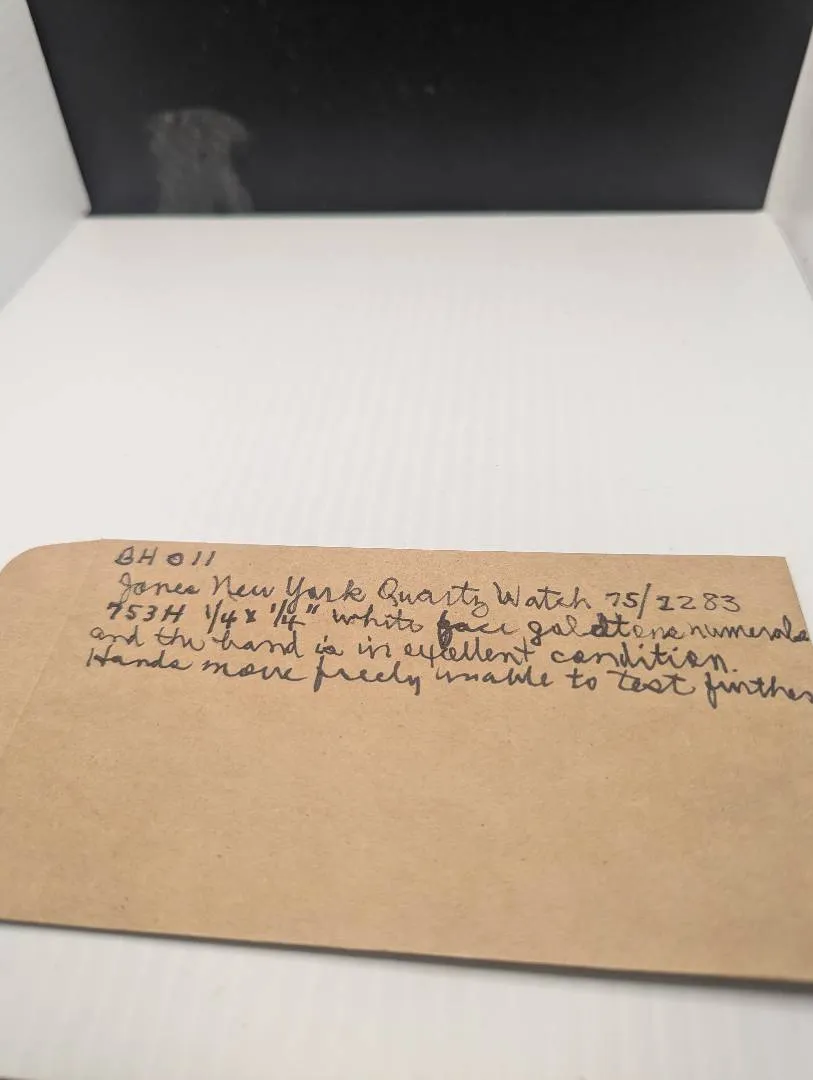 BH 011
Jones New York Quartz Watch 75/2283
753H 1/4 x 1/4" white face goldtone numerals
and the band is in excellent condition.
Hands move freely unable to test further